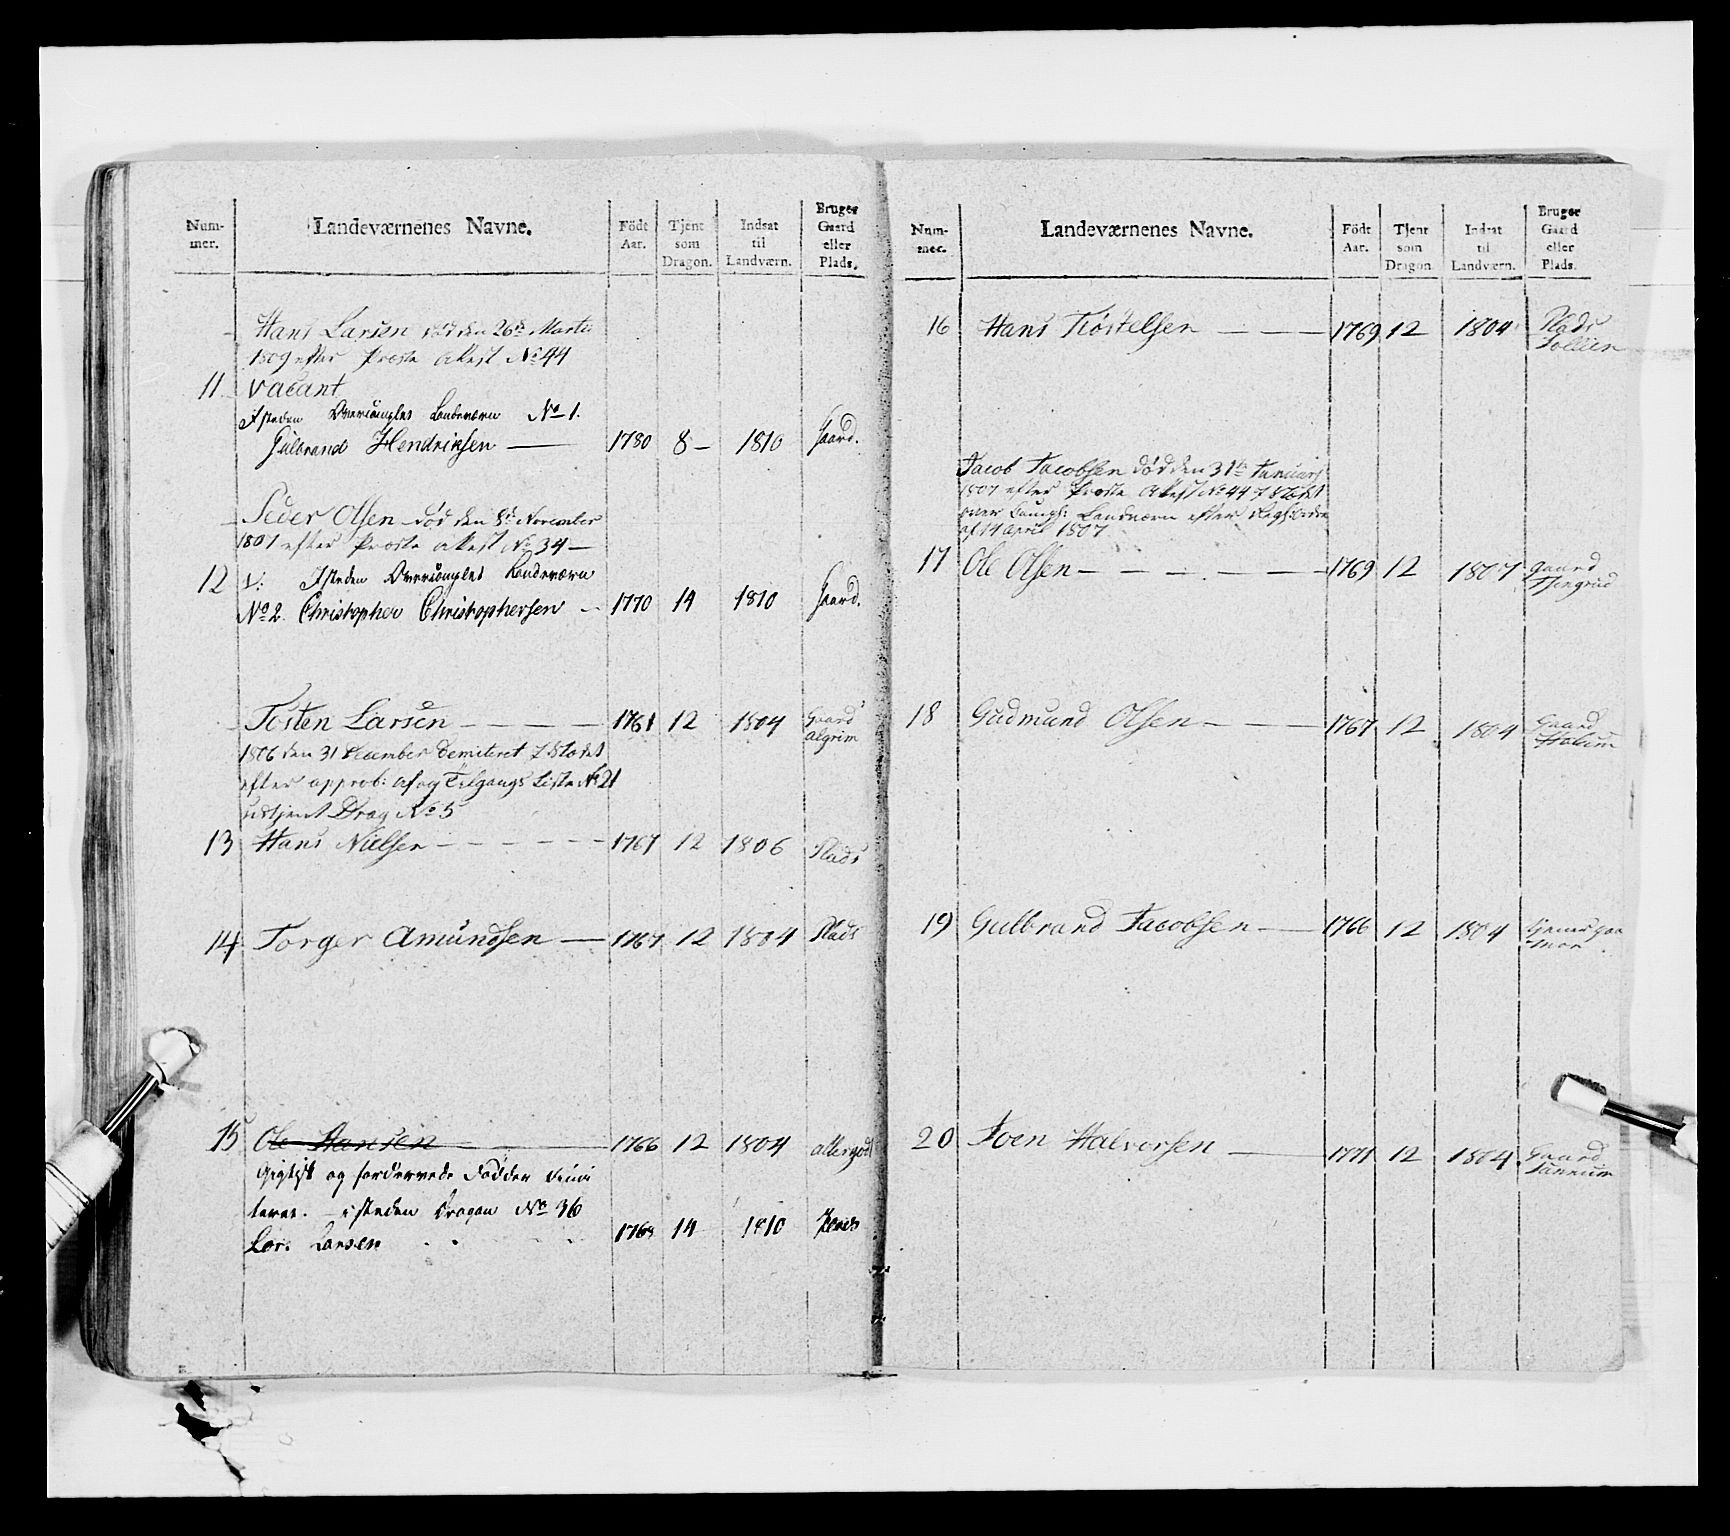 Num-
mer.
Landeværnenes Navne.
Födt
Aar.
Tjent
som
Dragon.
Indsat
til
Landværn.
Bruger
Gaard
eller
Plads.
Hans Larsen død den 26de Martii
1809 efter Præste Attest No 44
11 vacant
Isteden Overcomplet Landeværn No 1.
Gulbrand Hendriksen — 1780 8 — 1810 Gaard.
Peder Olsen død den 8de November
1807 efter Præste Attest No 34 —
12 v: Isteden Overcomplet Landeværn
No 2. Christopher Christophersen — 1770 14 1810 Gaard.
Tosten Larsen — — — 1761 12 1804 Gaard
algrim
1806 den 31 December Demiteret I Stædet
efter approb: Af og Tilgangs Liste No 21
udtjent Drag No 5
13 Hans Nielsen — — — 1767 12 1806 Plads
14 Torger Amundsen — 1767 12 1804 Plads
15 Ole Hansen — 1766 12 1804
Gigtisk og fordervede Fødder Dimi
teret. — isteden Dragon No 36
Lar. Larsen 1768 14 1810 Plads
Num-
mer.
Landeværnenes Navne.
Födt
Aar.
Tjent
som
Dragon
Indsat
til
Landværn.
Bruger
Gaard
eller
Plads.
16 Hans Kiøstelsen — — 1769 12 1804 Plads
Jacob Jacobsen død den 31te Januarj
1807 efter Præste Attest No 44 I Stædet
over Compl: Landværn efter Reg: Ordre
af 14 April 1807
17 Ole Olsen — — — 1769 12 1807 Gaard
18 Gudmund Olsen — — 1767 12 1804 Gaard
19 Gulbrand Jacobsen — 1766 12 1804
20 Joen Halvorsen — 1771 12 1804 Gaard